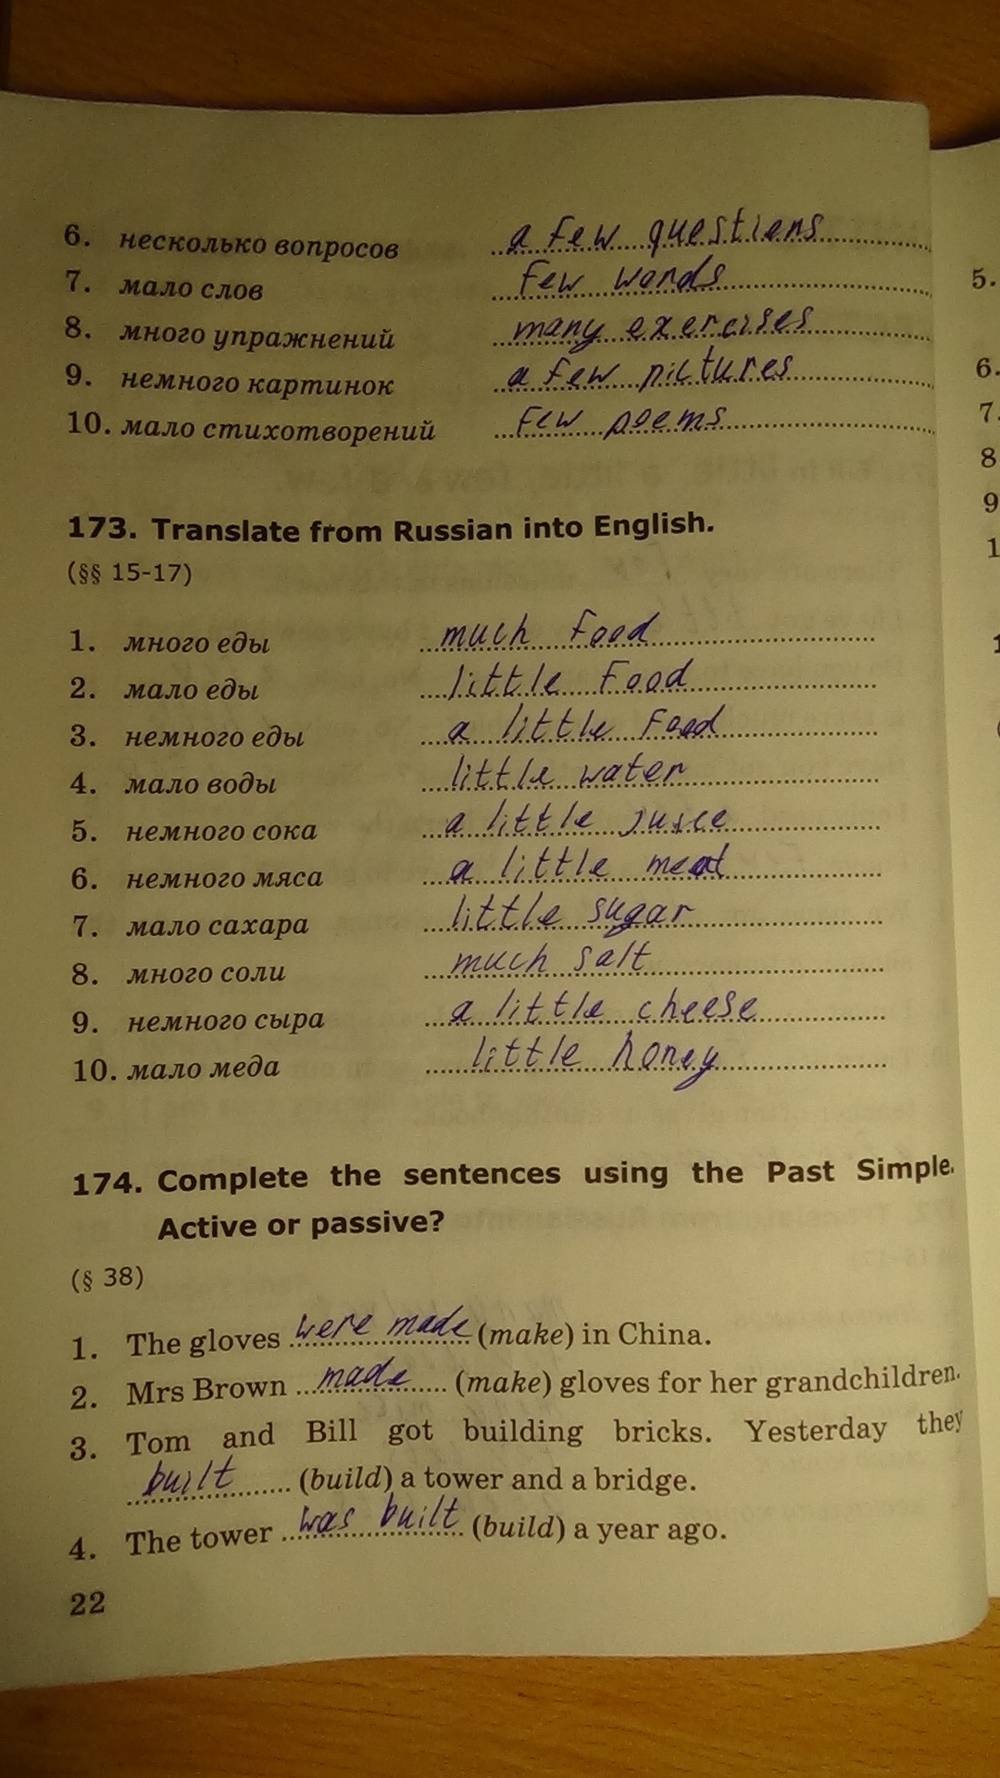 6. несколько вопросов a few questions
7. мало слов few words
8. много упражнений many exercises
9. немного картинок a few pictures
10. мало стихотворений few poems
173. Translate from Russian into English.
(§§ 15-17)
1. много еды much food
2. мало еды little food
3. немного еды a little food
4. мало воды little water
5. немного сока a little jusce
6. немного мяса a little meat
7. мало сахара little sugar
8. много соли much salt
9. немного сыра a little cheese
10. мало меда little honey
174. Complete the sentences using the Past Simple.
Active or passive?
(§ 38)
1. The gloves were made (make) in China.
2. Mrs Brown made (make) gloves for her grandchildren.
3. Tom and Bill got building bricks. Yesterday they
built (build) a tower and a bridge.
4. The tower was built (build) a year ago.
22
5.
6.
7.
8
9
1